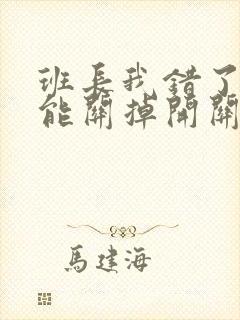 班长我错了
能關掉開關
馬建海